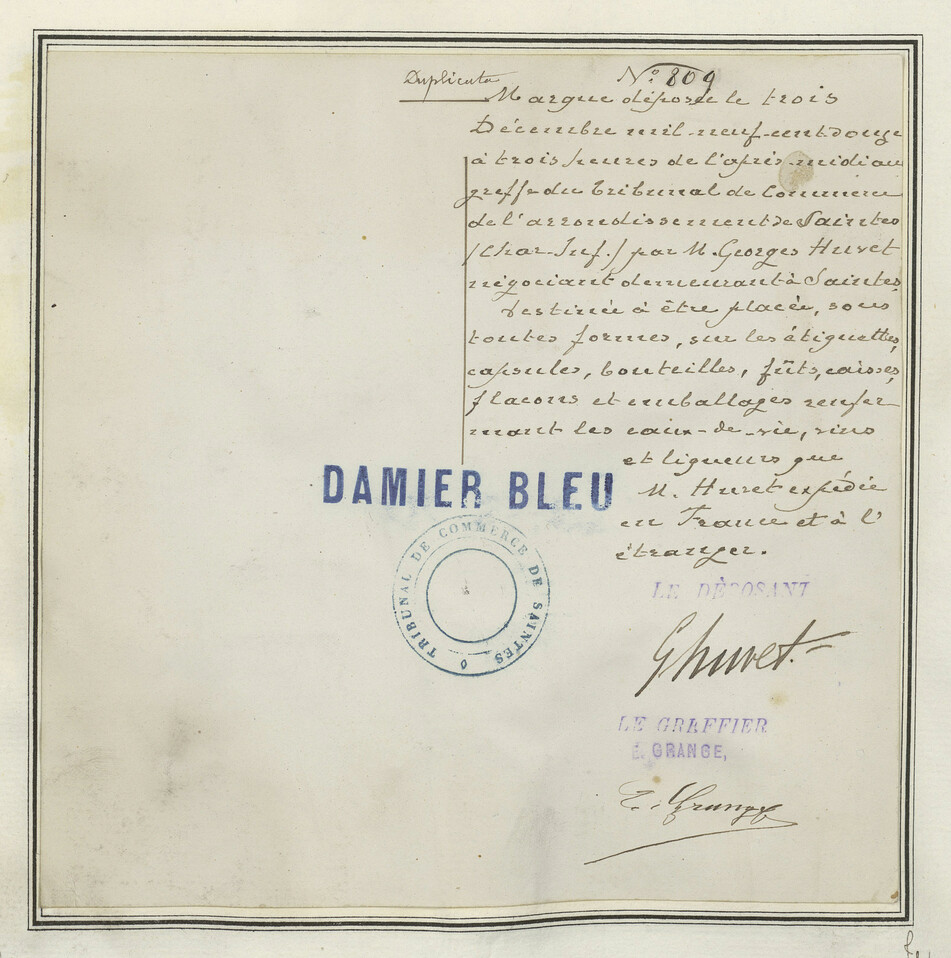 Duplicata
N° 809
Marque déposée le trois
Décembre mil-neuf-cent douze
à trois heures de l'après-midi au
greffe du Tribunal de Commerce
de l'arrondissement de Saintes
(Char-Inf.) par M. Georges Huvet
négociant demeurant à Saintes,
destinée à être placée, sous
toutes formes, sur les étiquettes,
capsules, bouteilles, fûts, caisses,
flacons et emballages renfer
mant les eaux-de-vie, vins
et liqueurs que
M. Huvet expédie
en France et à l'
étranger.
DAMIER BLEU
TRIBUNAL DE COMMERCE DE SAINTES
LE DÉPOSANT
Ghuvet.
LE GREFFIER
E. GRANGE,
E. Grange